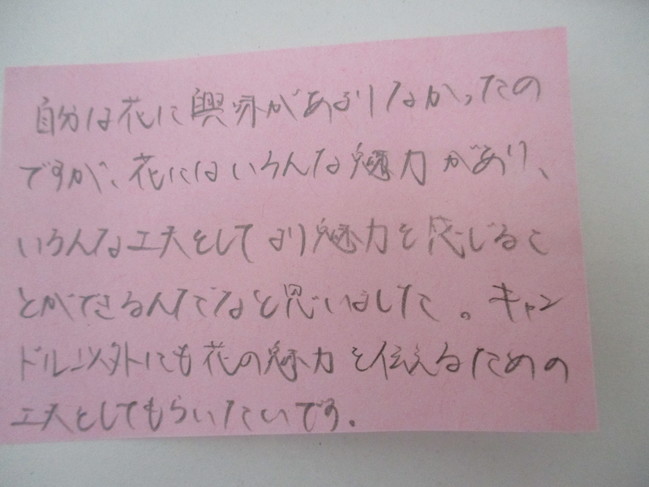 自分は花に興味があまりなかったの
ですが、花にはいろんな魅力があり、
いろんな工夫をしてより魅力を感じるこ
とができるんだなと思いました。キャン
ドル以外にも花の魅力を伝えるための
工夫をしてもらいたいです。